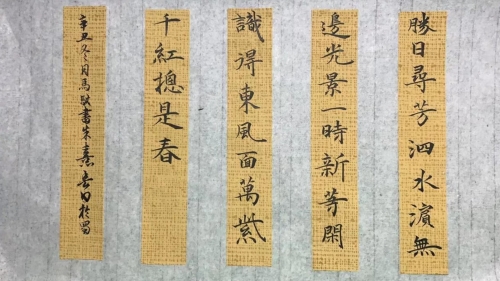 勝日尋芳泗水濱無
邊光景一時新等閑
識得東風面萬紫
千紅摠是春
辛丑冬月馬書朱熹春日於蜀